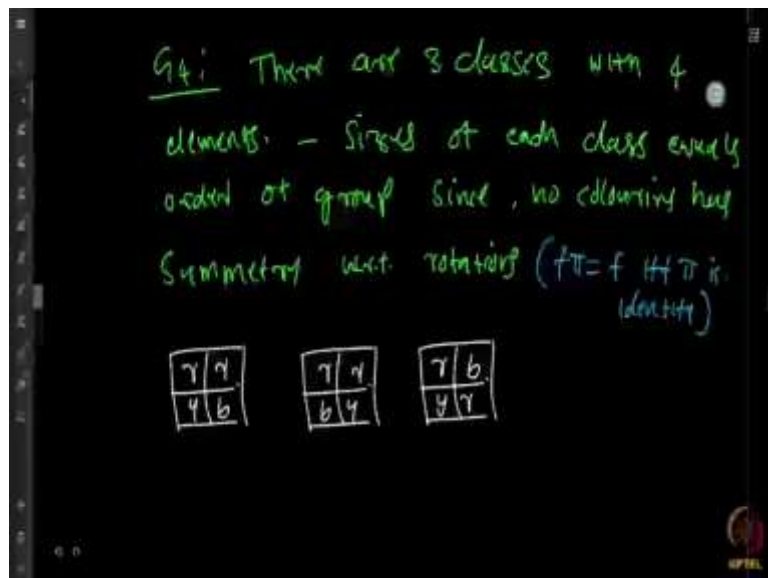 G4: There are 3 classes with 4
elements. - Sizes of each class equals
order of group since, no colouring has
Symmetry w.r.t. rotations (fπ = f iff π is
identity)
r r r r r b
y b b y y r
NPTEL